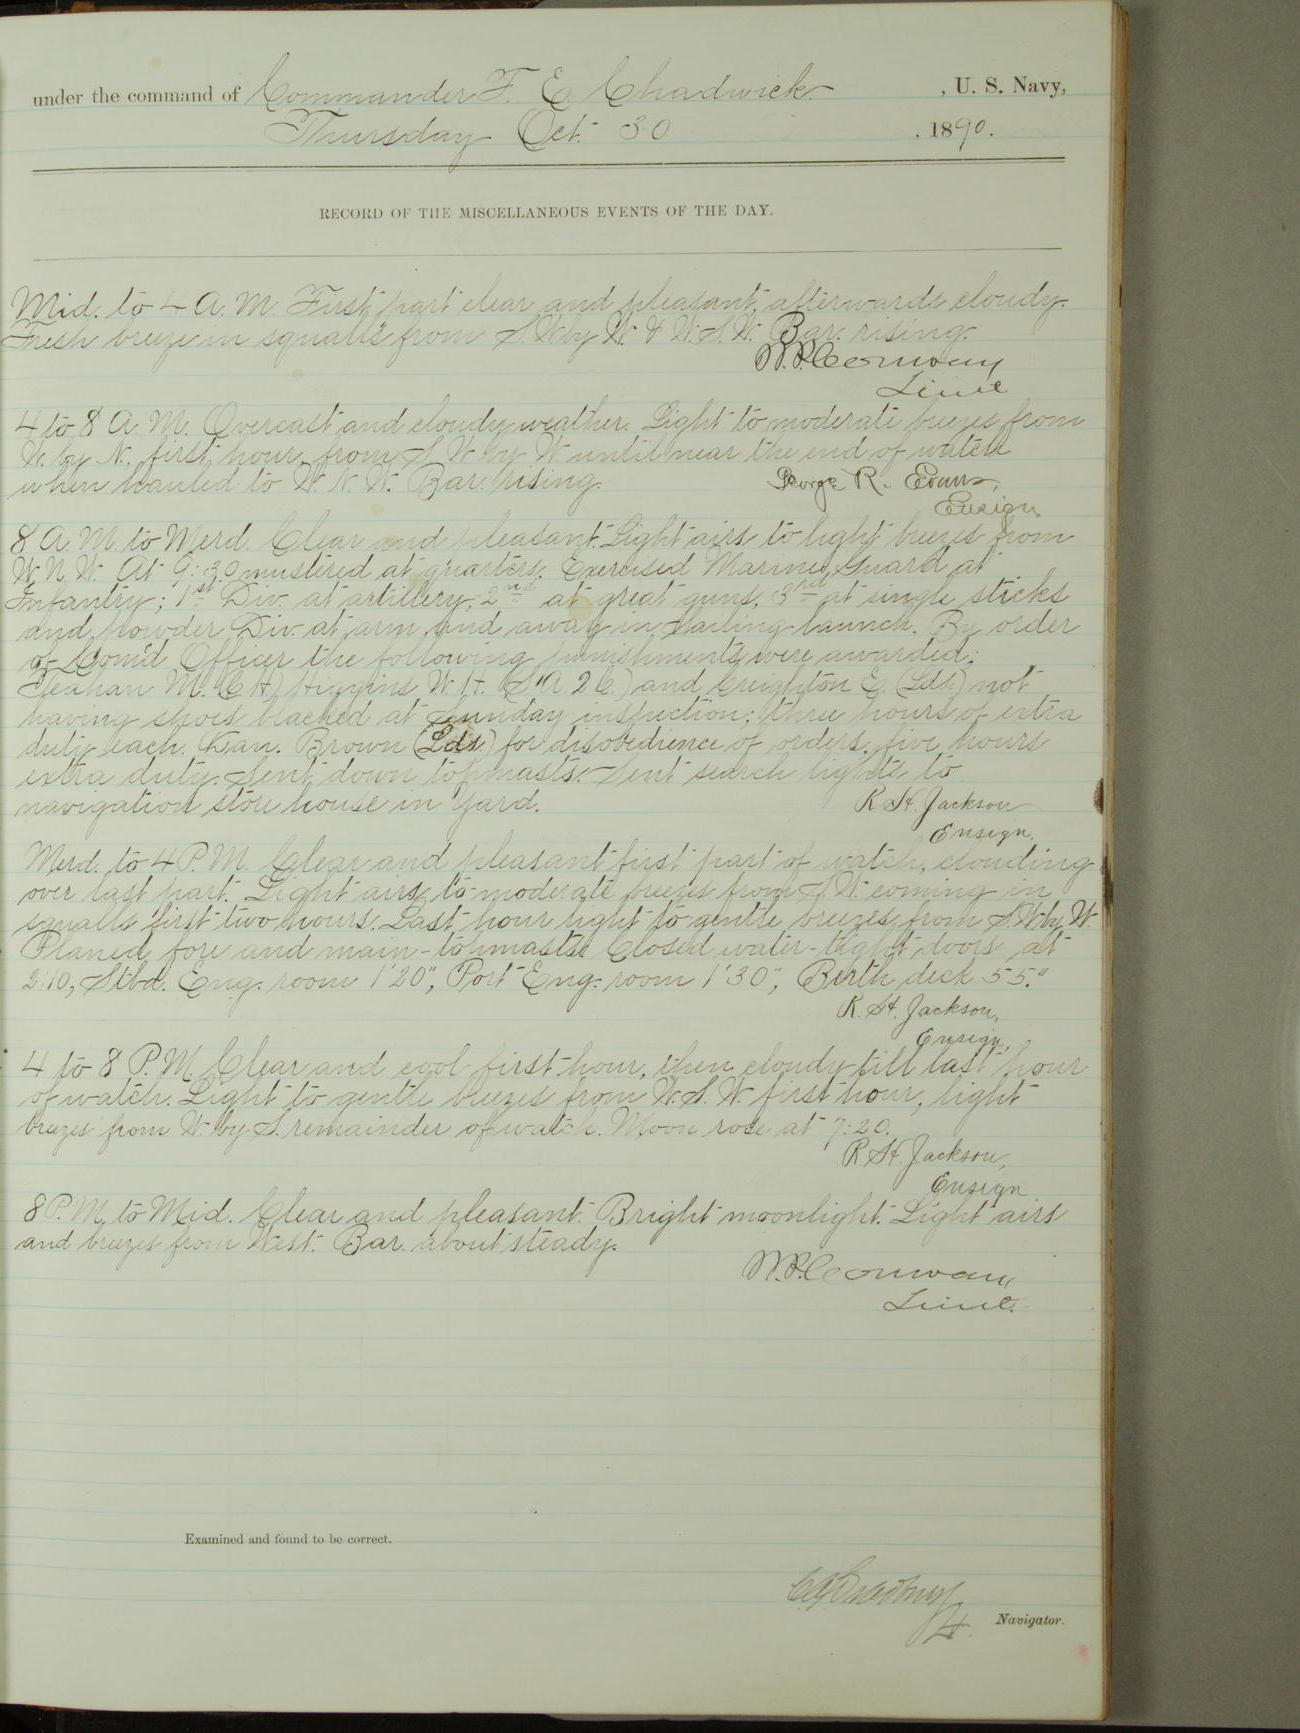 under the command of Commander F. E. Chadwick , U. S. Navy,
Thursday Oct. 30 , 1890.
RECORD OF THE MISCELLANEOUS EVENTS OF THE DAY.
Mid. to 4 A. M. First part clear and pleasant, afterwards cloudy.
Fresh breeze in squalls from S.W. by W. & W.S.W. Bar. rising.
W.P. Conway
Lieut
4 to 8 A. M. Overcast and cloudy weather. Light to moderate breezes from
W. by N. first hour, from S. W. by W. until near the end of watch
when hauled to W. N. W. Bar. rising.
George R. Evans,
Ensign
8 A. M. to Merd. Clear and pleasant. Light airs to light breezes from
W. N. W. At 9:30 mustered at quarters. Exercised Marine Guard at
Infantry; 1st Div. at artillery, 2nd at great guns, 3rd at single sticks
and powder Div. at arm and away in sailing launch. By order
of Com'd Officer the following punishments were awarded:
M. (C.H.) Higgins W. H. (S"A 2 C.) and Creighton E. (Lds.) not
having shoes blacked at Sunday inspection; three hours of extra
duty each. Dan. Brown (Lds.) for disobedience of orders, five hours
extra duty. Sent down topmasts. Sent search lights to
navigation store house in Yard.
R. H. Jackson
Ensign.
Merd. to 4 P. M. Clear and pleasant first part of watch, clouding
over last part. Light airs to moderate breezes from S. W. coming in
squalls first two hours. Last hour light to gentle breezes from S.W. by W.
Planed fore and main-topmasts. Closed water-tight doors at
2:10, Stbd. Eng. room 1'20", Port Eng. room 1'30", Birth deck 55."
R. H. Jackson,
Ensign,
4 to 8 P. M. Clear and cool first hour, then cloudy till last hour
of watch. Light to gentle breezes from W. S. W. first hour, light
breezes from W. by S. remainder of watch. Moon rose at 7:20.
R. H. Jackson,
Ensign
8 P. M. to Mid. Clear and pleasant. Bright moonlight. Light airs
and breezes from West. Bar. about steady.
W.P. Conway
Lieut.
Examined and found to be correct.
Navigator.